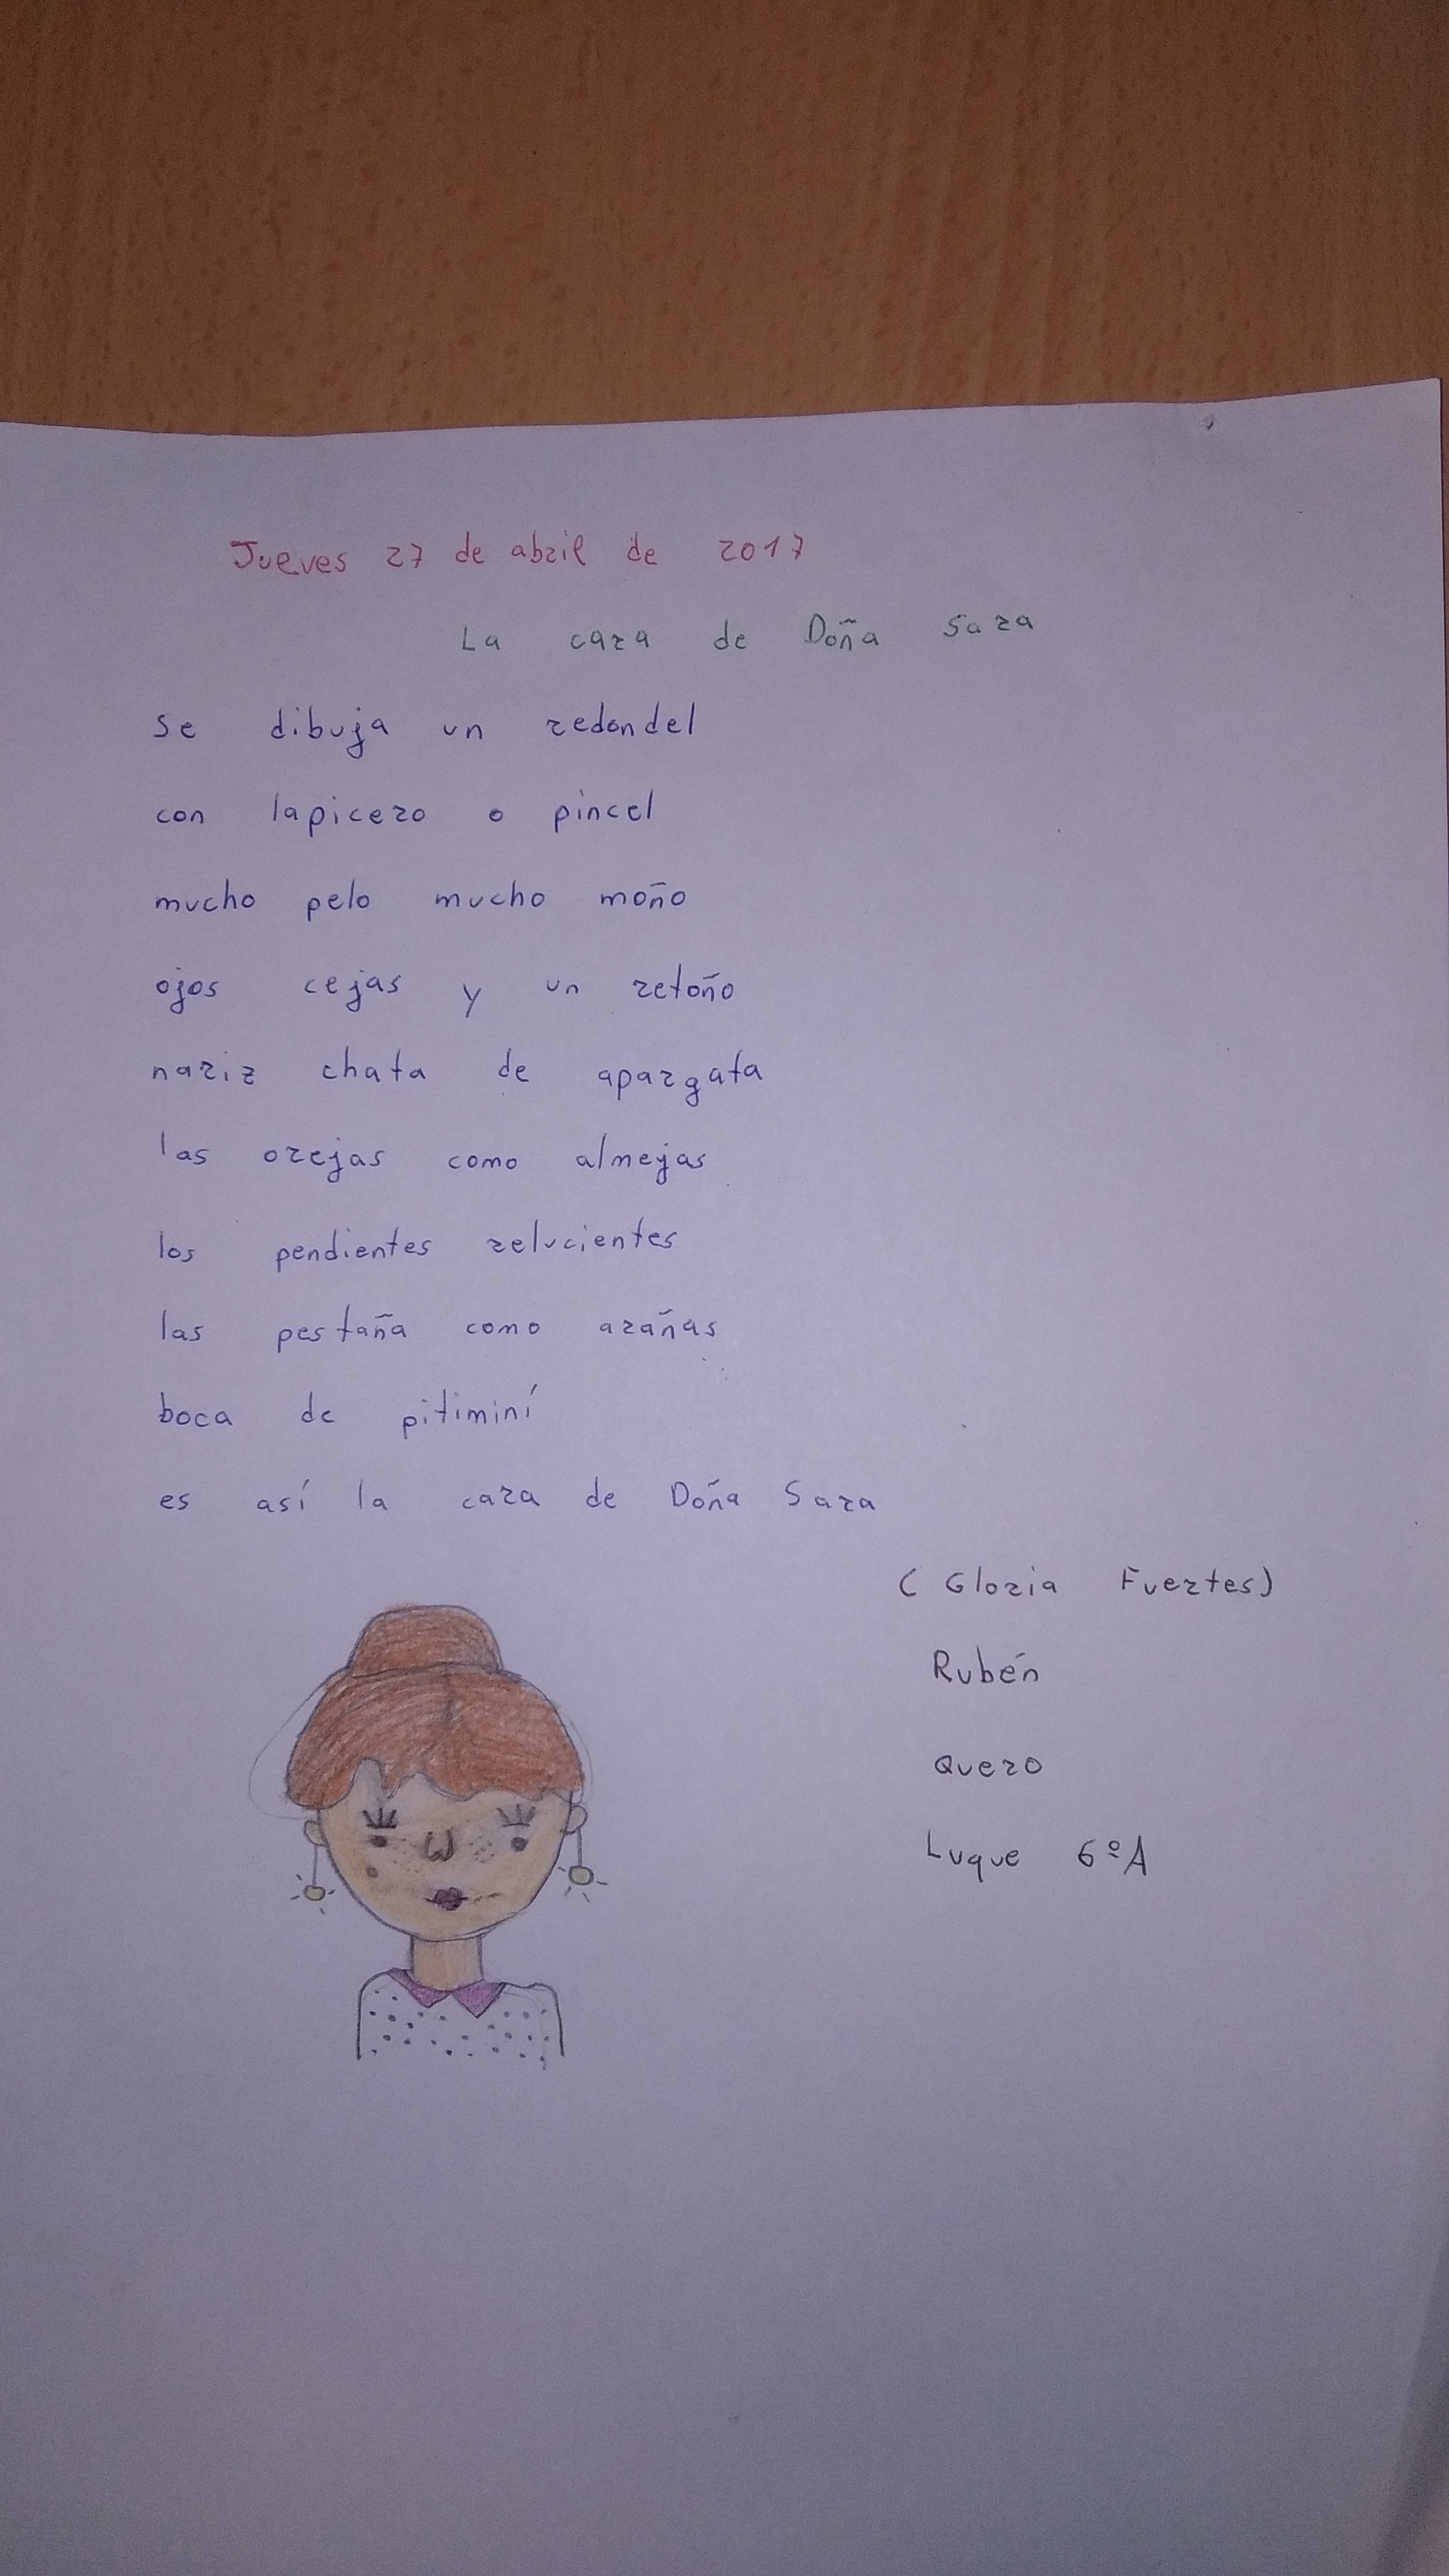 Jueves 27 de abril de 2017
La cara de Doña Sara
se dibuja un redondel
con lapicero o pincel
mucho pelo mucho moño
ojos cejas y un retoño
nariz chata de apargata
las orejas como almejas
los pendientes relucientes
las pestaña como arañas
boca de pitiminí
es así la cara de Doña Sara
( Gloria Fuertes)
Rubén
Quero
Luque 6ºA